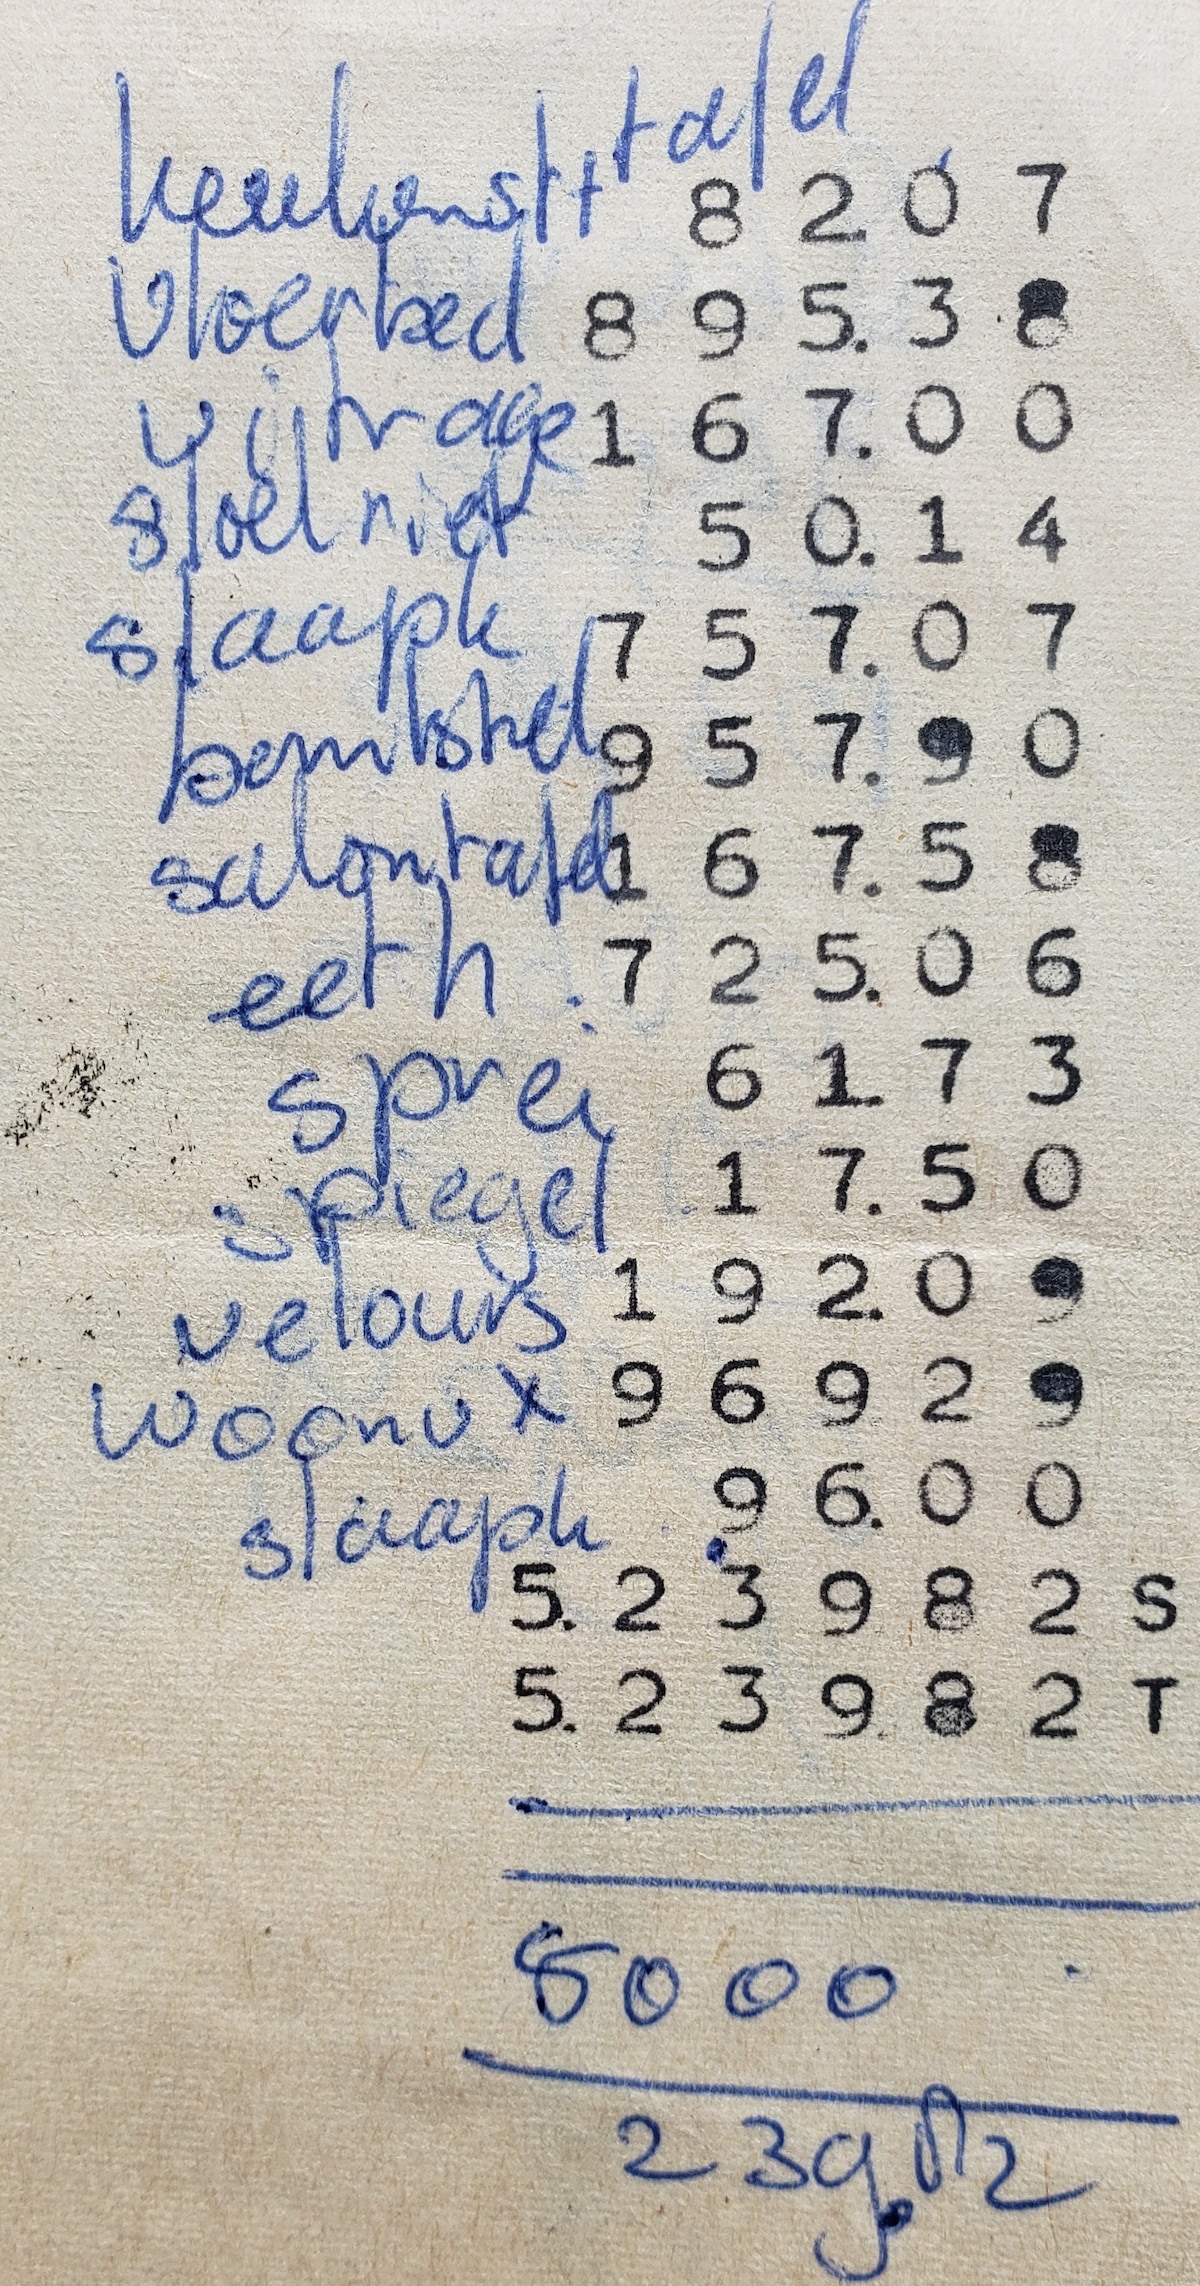 tafel
keukenstt 82.07
vloerbed 895.38
vijtrage 167.00
stoel riet 50.14
slaapk 757.07
957.90
salontafel 167.58
eeth. 725.06
sprei 61.73
spiegel 17.50
velours 192.09
woonv x 96929
slaapk 96.00
5.23982 S
5.239.82 T
5000
239.82